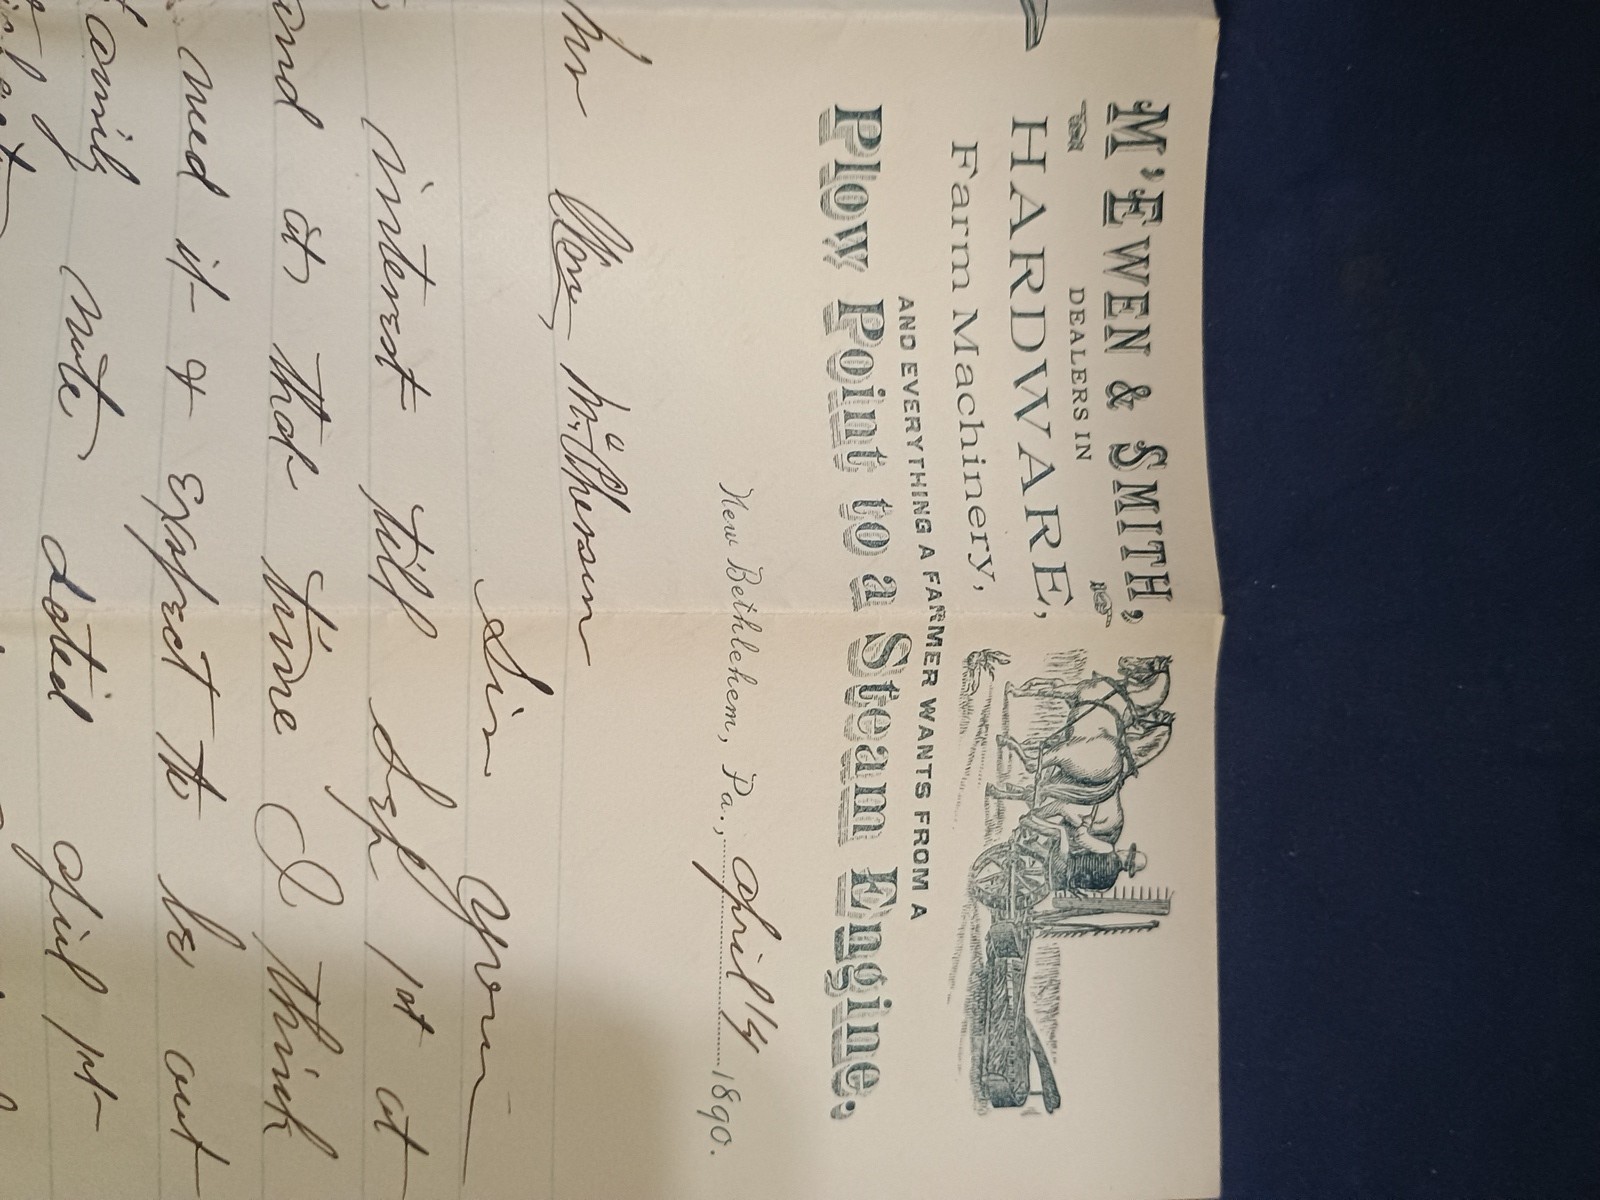 M'EWEN & SMITH,
DEALERS IN
HARDWARE,
Farm Machinery,
AND EVERYTHING A FARMER WANTS FROM A
Plow Point to a Steam Engine.
New Bethlehem, Pa., april 14 1890.
Mr
Sir
interest till Sep 1st at
and at that time I think
need it & Expect to be out
note dated april 1st